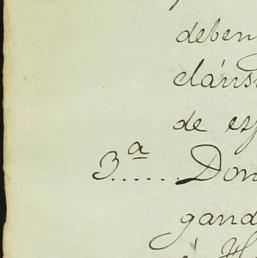 deben
cláus
de es
3ª......Don
gand